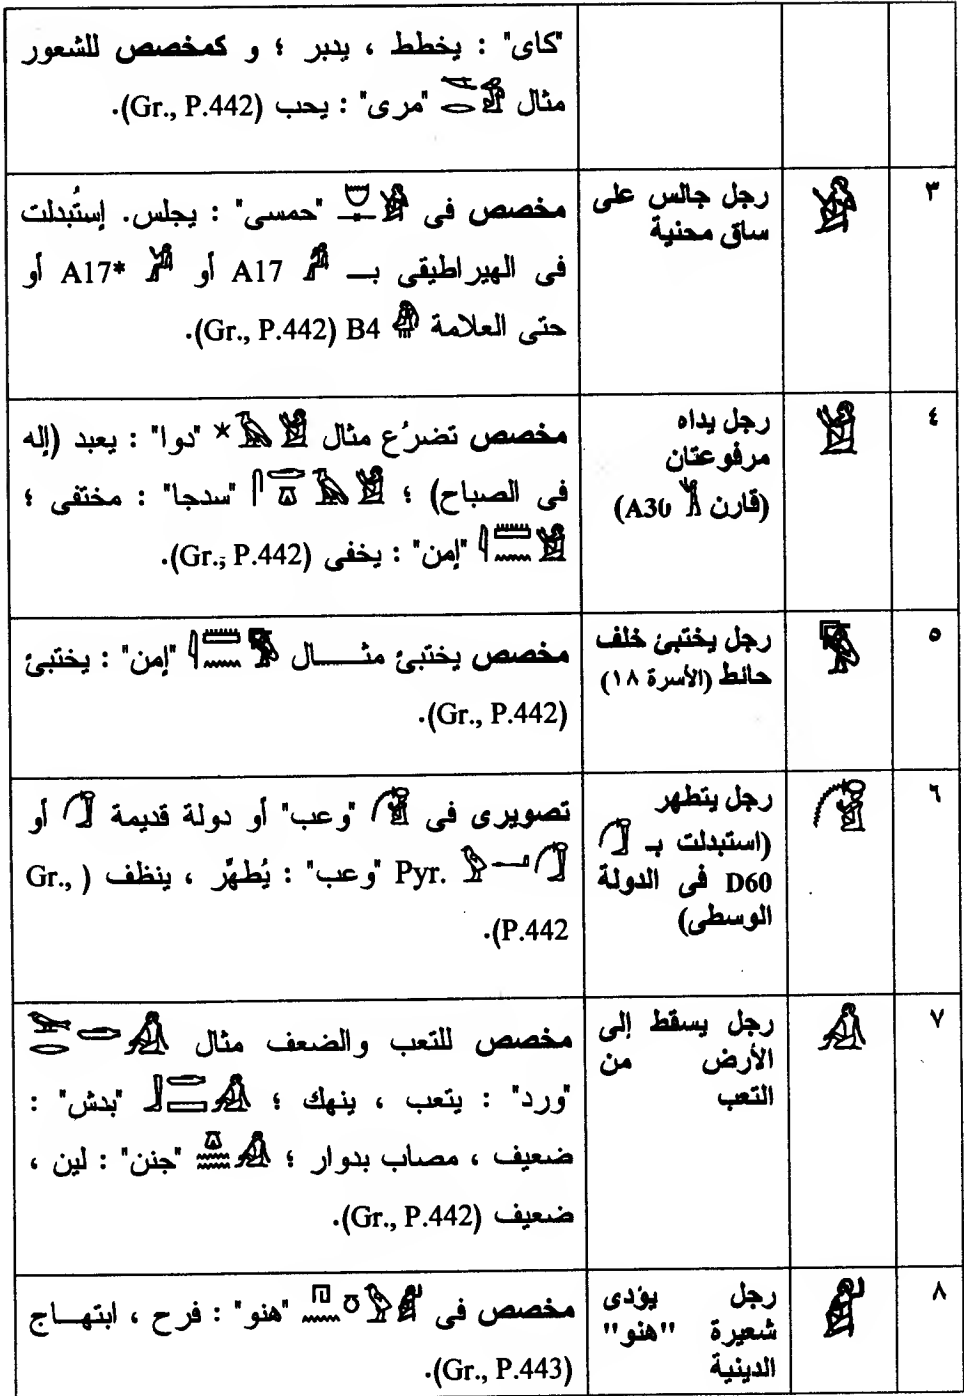 "كاى" : يخطط ، يدبر ؛ و كمخصص للشعور
مثال "مرى" : يحب (Gr., P.442).
٣
رجل جالس على
ساق محنية
مخصص فى "حمسى" : يجلس. إستُبدلت
فى الهيراطيقى بـ A17 أو A17* أو
حتى العلامة B4 (Gr., P.442).
٤
رجل يداه
مرفوعتان
(قارن A30)
مخصص تضرُع مثال "دوا" : يعبد (إله
فى الصباح) ؛ "سدجا" : مختفى ؛
"إمن" : يخفى (Gr., P.442).
٥
رجل يختبئ خلف
حائط (الأسرة ١٨)
مخصص يختبئ مثال "إمن" : يختبئ
(Gr., P.442).
٦
رجل يتطهر
(استبدلت بـ
D60 فى الدولة
الوسطى)
تصويرى فى "وعب" أو دولة قديمة أو
Pyr. "وعب" : يُطهَّر ، ينظف (Gr.,
P.442).
٧
رجل يسقط إلى
الأرض من
التعب
مخصص للتعب والضعف مثال
"ورد" : يتعب ، ينهك ؛ "بدش" :
ضعيف ، مصاب بدوار ؛ "جنن" : لين ،
ضعيف (Gr., P.442).
٨
رجل يؤدى
شعيرة "هنو"
الدينية
مخصص فى "هنو" : فرح ، ابتهاج
(Gr., P.443).